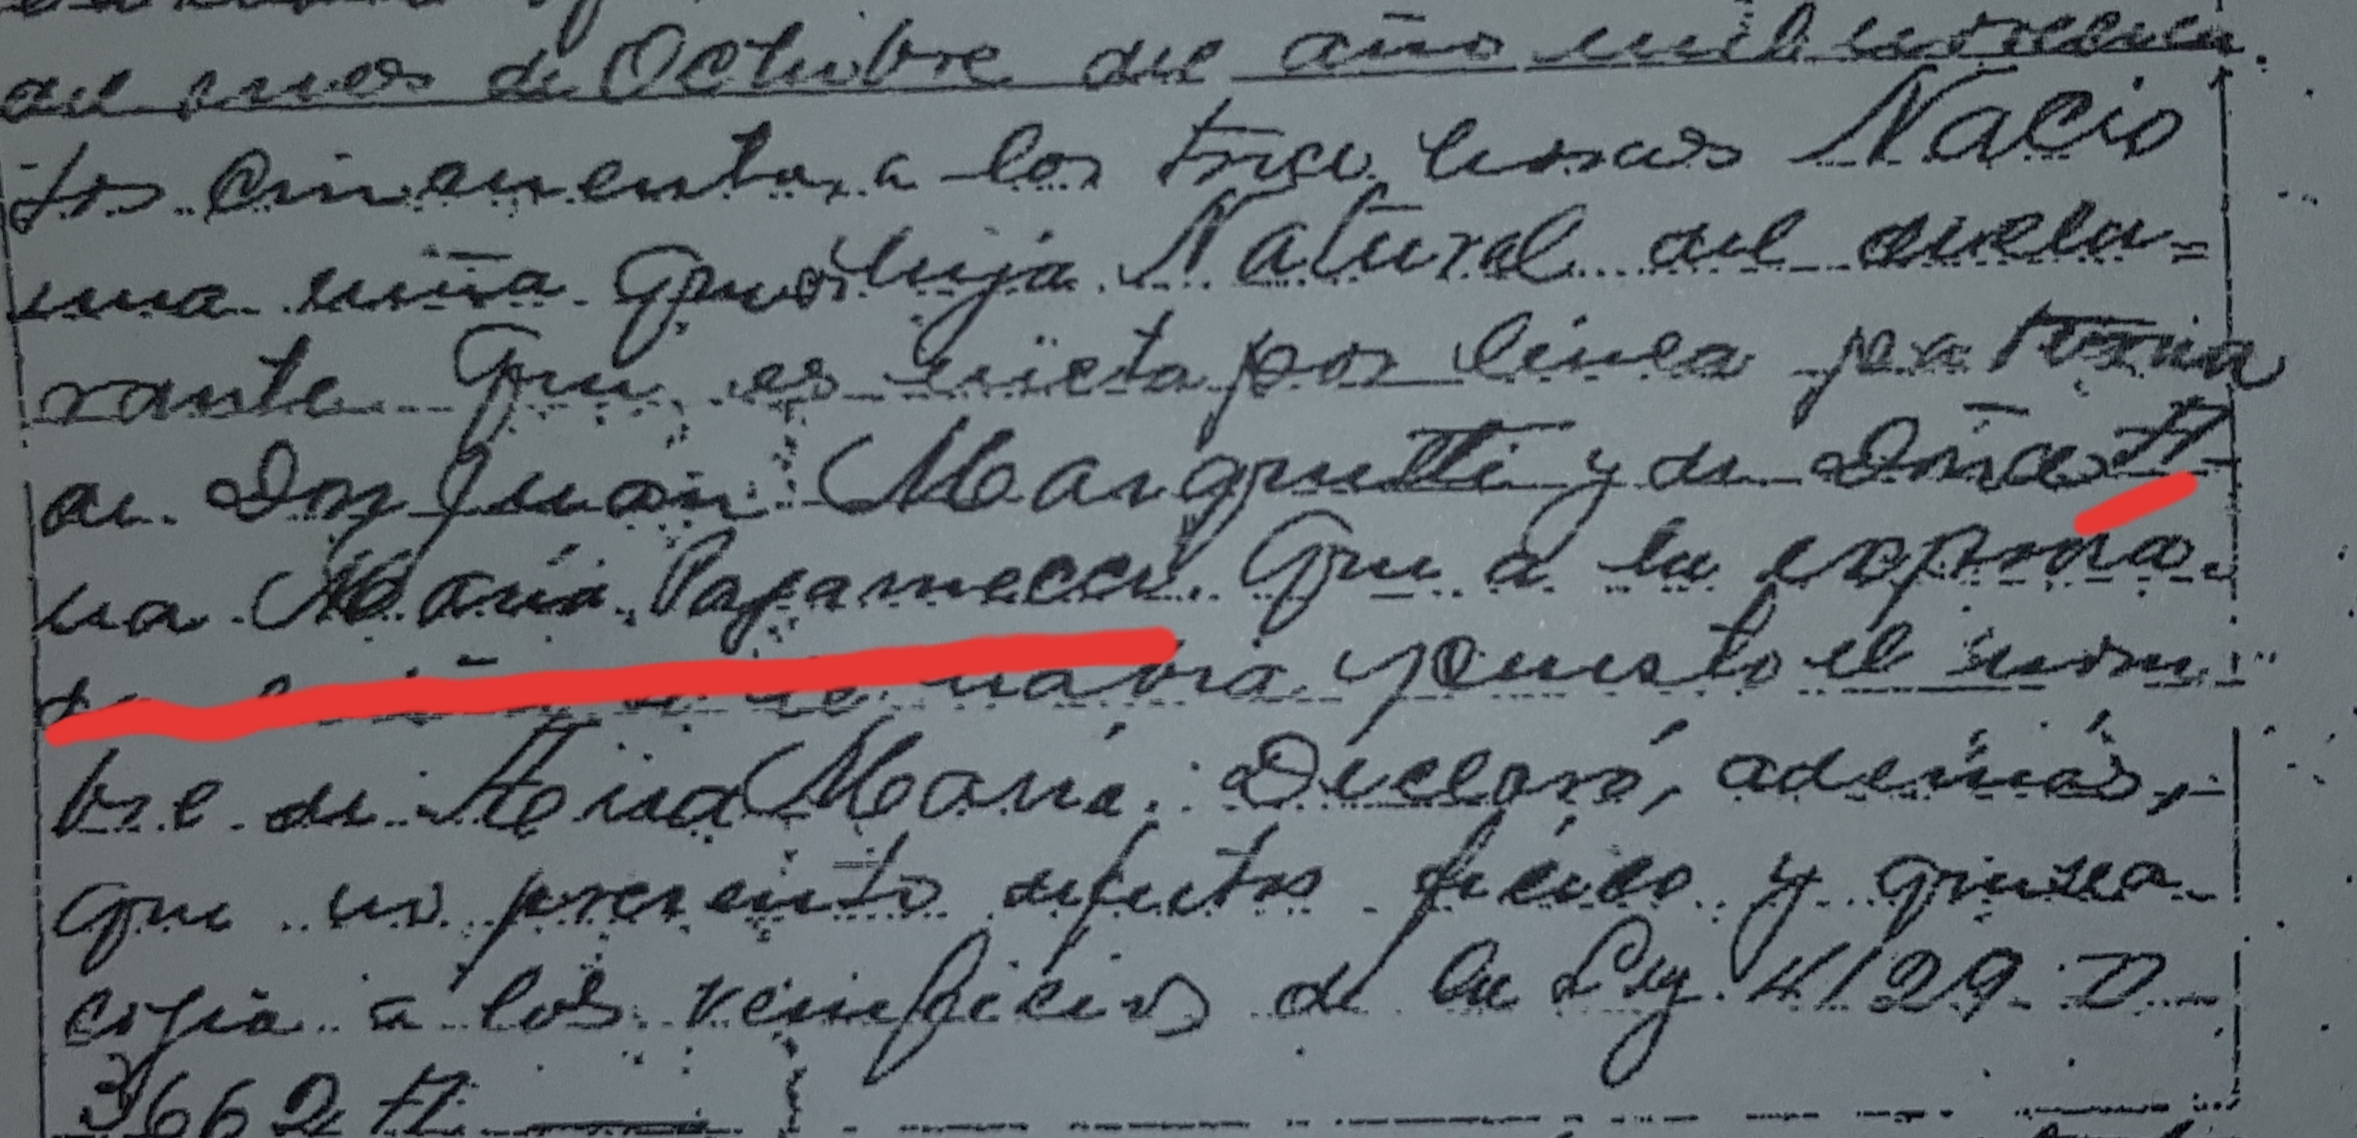 del mes de Octubre del año mil novecien
tos Cincuenta, a los trece horas Nacio
una niña Que es hija Natural del decla=
rante Que es nieta por linea paterna
de Don Juan Marquetti y de Doña A
na Maria Que a la expresa
habia puesto el nom
bre de Ana Maria. Declaró, además,
que no presento defectos fisico y que se a
cogia a los veneficios de la Ley 4129 D
3662 A